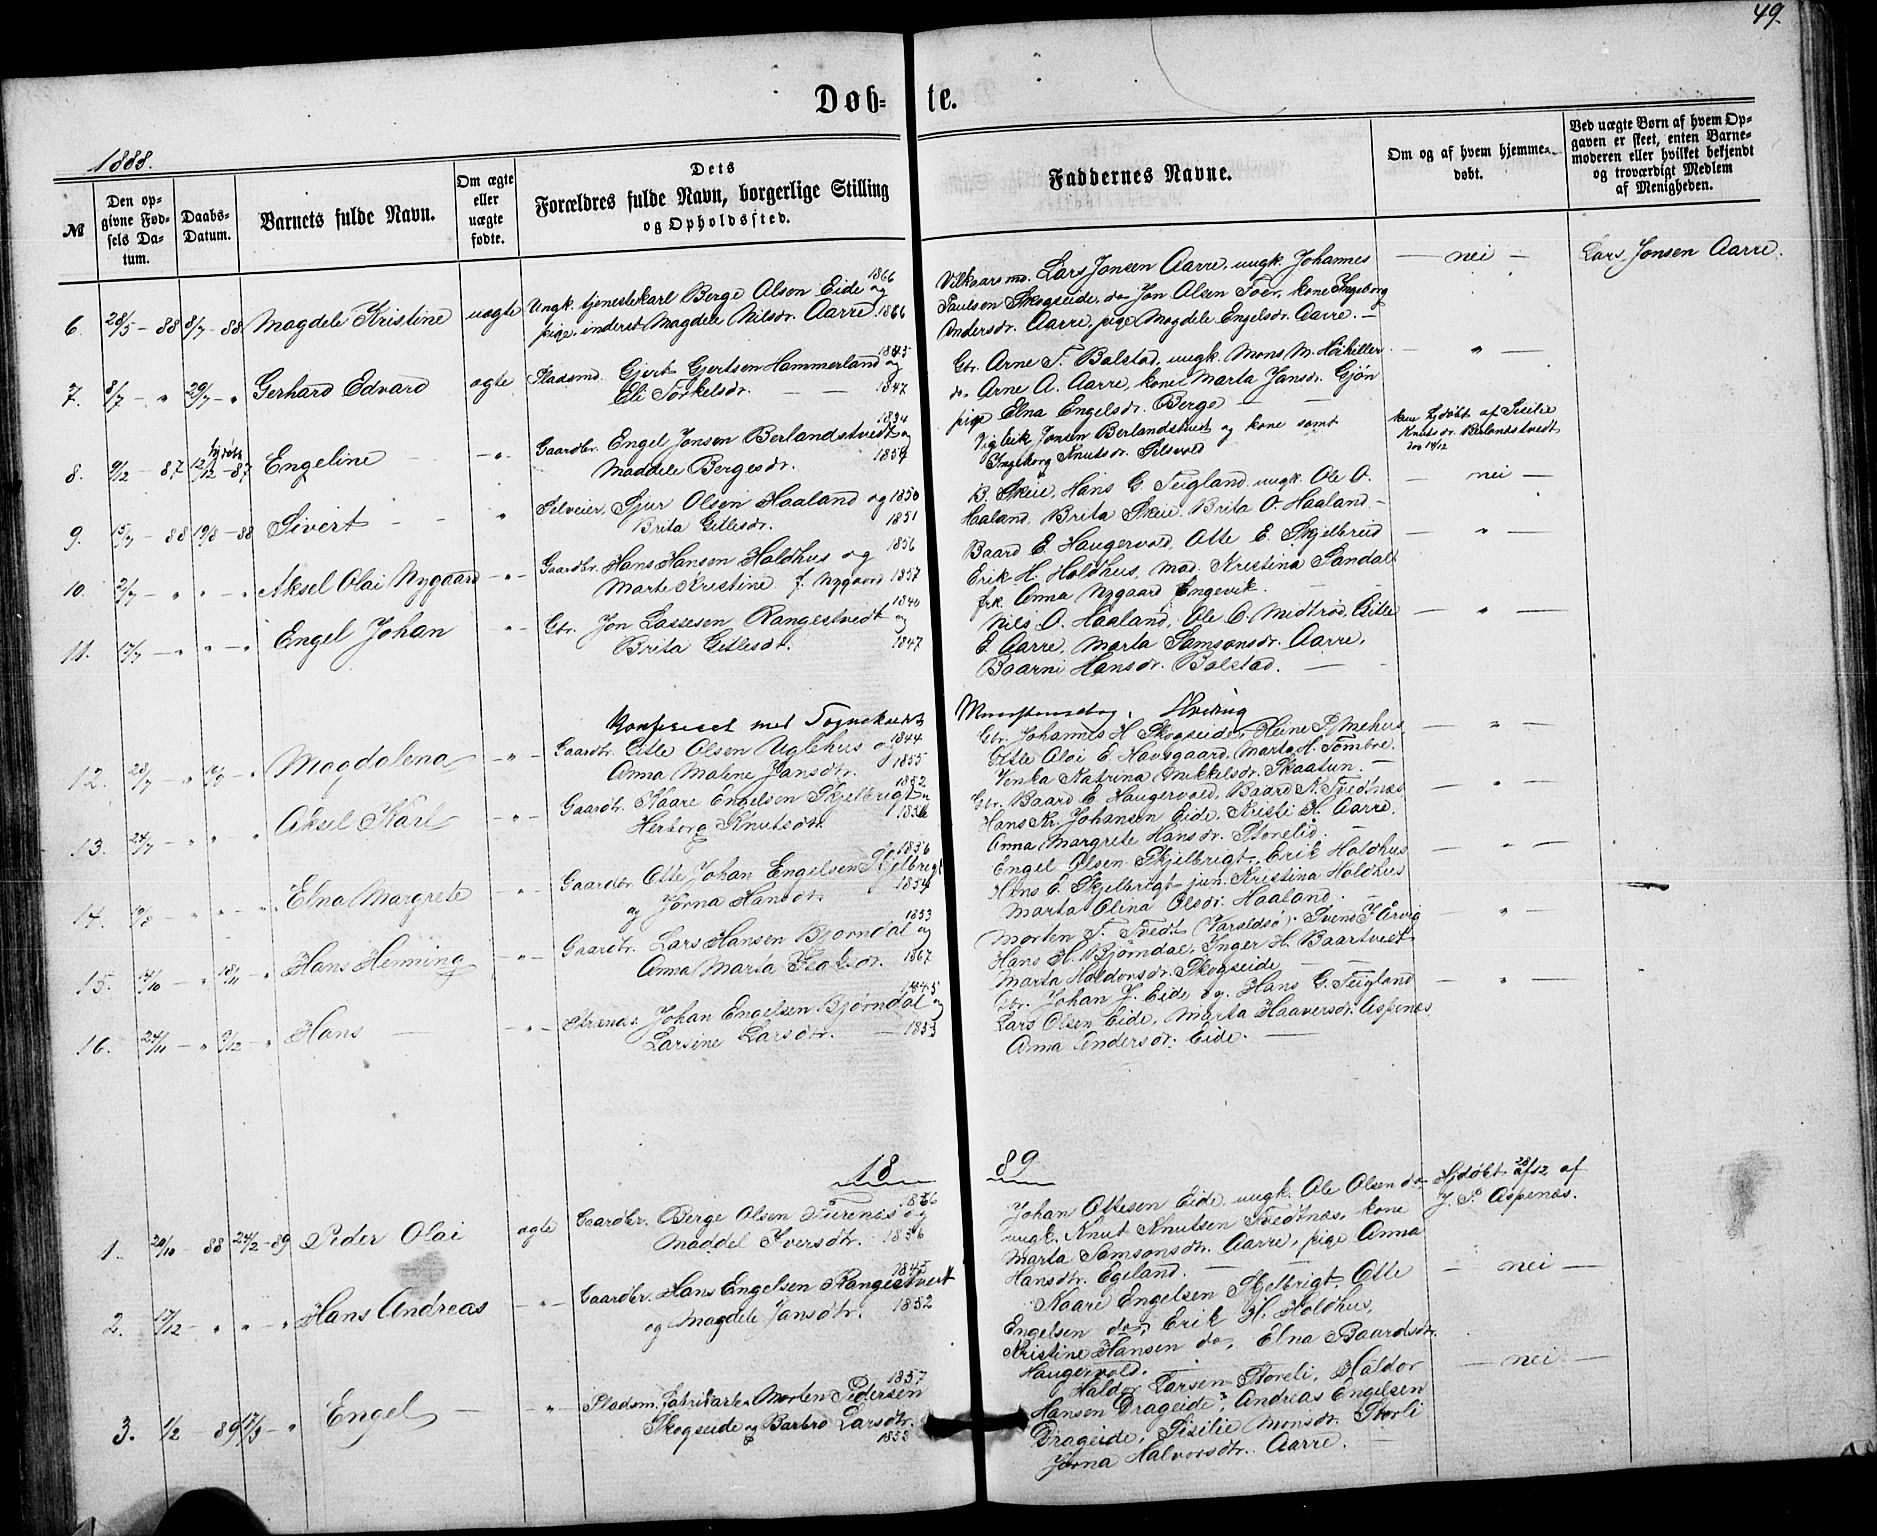 49.
Døb- te.
1888.
№
Den op-
givne Fød-
sels Da-
tum.
Daabs-
Datum.
Barnets fulde Navn.
Om ægte
eller
uægte
fødte.
Dets
Forældres fulde Navn, borgerlige Stilling
og Opholdssted.
Faddernes Navne.
Om og af hvem hjemme-
døbt.
Ved uægte Børn af hvem Op-
gaven er skeet, enten Barne-
moderen eller hvilket bekjendt
og troværdigt Medlem
af Menigheden.
6. 28/5 - 88 8/7 - 88 Magdele Kristine uægte
Ungk. tjenestekarl Berge Olsen Eide 1866 og
pige, inderst Magdele Nilsdr. Aarre. 1866
Vilkaarsmd. Lars Jonsen Aarre, ungk. Johannes
Paulsen Skogseide, do Jon Olsen Toer, kone Ingeborg
Andersdr. Aarre, pige Magdele Engelsdr. Aarre. -
- nei -
Lars Jonsen Aarre.
7. 8/7 - " 29/7 - " Gerhard Edvard ægte
Pladsmd. Gjert Gjertsen Hammerland 1845 og
Eli Torkelsdr. - - 1847
Gbr. Arne T. Balstad, ungk. Mons M.
do Arne A. Aarre, kone Marta Jansdr. Gjøn
pige Elna Engelsdr. Berge
- " -
8. 9/12 - 87 hjdøbt 12/12 - 87 Engeline - " -
Gaardbr. Engel Jonsen Berlandstvedt og 1834
Maddele Bergesdr. 1854
Vigleik Jonsen Berlandstvedt og kone samt
Ingeborg Knutsdr. Selsvold
hjdøbt af Sisilie
Knutsdr. Berlandstvedt
9. 15/7 - 88 19/8 - 88 Sivert - - "
Selveier, Sjur Olsen Haaland og 1850
Brita Gitlesdr. 1851
B. Skeie, Hans G. Teigland, ungk. Ole O.
Haaland, Brita Skeie, Brita O. Haaland. -
- nei -
10. 2/7 - " " - " Aksel Olai Nygaard - " -
Gaardbr. Hans Hansen Holdhus og 1856
Marte Kristine f. Nygaard 1857
Baard E. Haugervold, Otte E. Skjelbred
Erik H. Holdhus, Mad. Kristina Sandal
frk. Anna Nygaard Engevik.
- " -
11. 17/7 - " " - " Engel Johan " -
Gbr. Jon Lassesen Rangestvedt 1840 og
Brita Gitlesdr. 1847
Nils O. Haaland, Ole O. Midtrød, Gitle
J. Aarre, Marta Samsonsdr. Aarre,
Baarni Hansdr. Balstad. -
- " -
Konfereret med Sognekaldets Ministerialbog. Hviding
12. 28/7 - " 19/8 - " Magdalena - " -
Gaardbr. Gitle Olsen Uglehus og 1844
Anna Malene Jansdtr. 1855
Gbr. Johannes H. Skogseide, Heine P. Mehus
Gitle Olai E. Havsgaard, Marta H. Tømbre.
Venka Katrina Mikkelsdr. Skaatun. -
- " -
13. 24/7 " " " Aksel Karl - " -
Gaardbr. Kaare Engelsen Skjelbrigt og 1852
Herborg Knutsdtr. 1856
Gbr. Baard E. Haugervold, Baard N. Tvedtnæs
Hans Kr. Johansen Eide, Kristi H. Aarre.
Anna Margrete Hansdr. Storelid. -
- " -
14. - " " - " Elna Margrete - " -
Gaardbr. Otte Johan Engelsen Skjelbrigt 1856
og Jorna Hansdtr. 1854
Engel Olsen Skjelbrigt, Erik Holdhus
Hans E. Skjelbrigt jun. Kristina Holdhus
Marta Olina Olsdr. Haaland. -
- " -
15. 14/10 - " 18/11 - " Hans Henning - " -
Gaardbr. Lars Hansen Bjørndal og 1853
Anna Marta Isaksdr. 1867
Morten T. Tvedt (Varaldsø). Svend J. Arvig
Hans H. Bjørndal, Inger H. Baartvedt
Marta Haldorsdr. Skogseide -
- " -
16. 24/11 - " 9/12 - " Hans - " -
Strands. Johan Engelsen Bjørndal og 1845
Larsine Larsdtr. - 1853
Gbr. Johan J. Eide og Hans G. Teigland
Lars Olsen Eide, Marta Haaversdr. Aspenæs
Anna Andersdr. Eide. -
- " -
18 89
1. 20/10 - 88 24/2 - 89 Peder Olai ægte
Gaardbr. Berge Olsen Furenes og 1856
Maddel Iversdtr. 1856
Johan Ottesen Eide, ungk. Ole Olsen do
ungk. Knut Knutsen Tvedtnæs, kone
Marta Samsonsdtr. Aarre, pige Anna
Hansdtr. Egeland. - -
Hjdøbt 28/12 af
J. P. Aspenæs.
2. 17/12 - " " - " Hans Andreas - " -
Gaardbr. Hans Engelsen Rangestvedt 1845
og Magdele Jansdtr. 1852
Kaare Engelsen Skjelbrigt, Otte
Engelsen do, Erik H. Holdhus,
Kristine Hansen do, Elna Baardsdtr.
Haugervold. -
- nei -
3. 1/2 - 89 17/3 - " Engel - - " -
Pladsm. fabrikarb. Morten Pedersen 1857
Skogseide og Barbro Larsdtr. 1855
Haldor Larsen Storeli, Haldor
Hansen Drageide, Andreas Engelsen
Drageide, Sisilie Monsdr. Storli
Jorna Halvorsdtr. Aarre.
- nei -